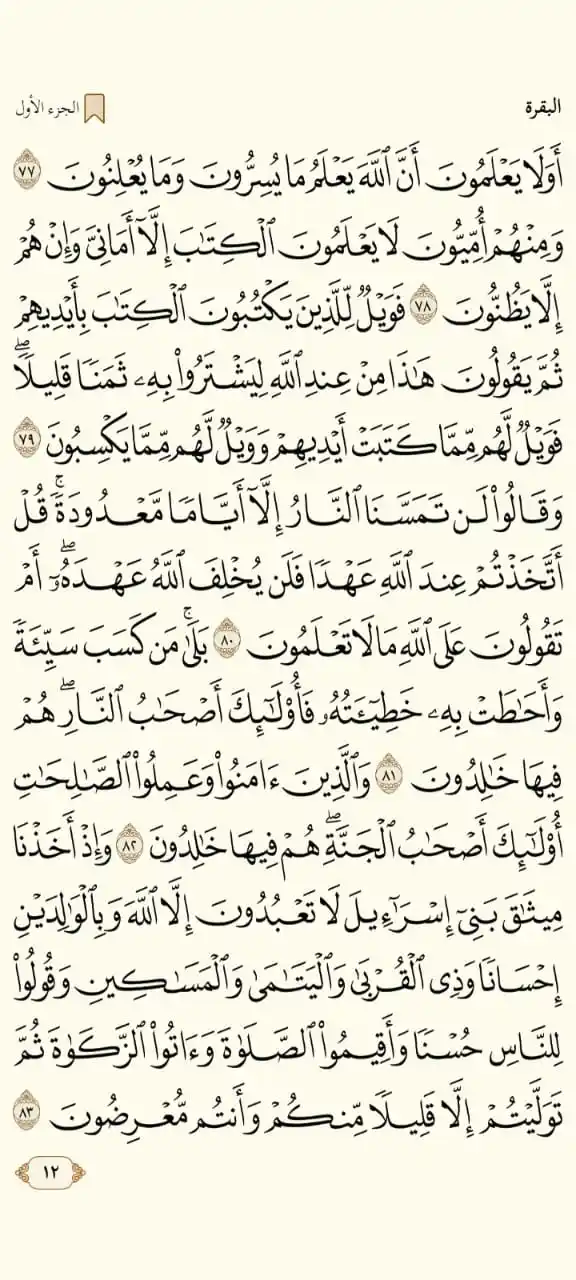 البقرة
الجزء الأول
أَوَلَا يَعْلَمُونَ أَنَّ ٱللَّهَ يَعْلَمُ مَا يُسِرُّونَ وَمَا يُعْلِنُونَ ٧٧
وَمِنْهُمْ أُمِّيُّونَ لَا يَعْلَمُونَ ٱلْكِتَٰبَ إِلَّآ أَمَانِىَّ وَإِنْ هُمْ
إِلَّا يَظُنُّونَ ٧٨ فَوَيْلٌ لِّلَّذِينَ يَكْتُبُونَ ٱلْكِتَٰبَ بِأَيْدِيهِمْ
ثُمَّ يَقُولُونَ هَٰذَا مِنْ عِندِ ٱللَّهِ لِيَشْتَرُوا۟ بِهِۦ ثَمَنًا قَلِيلًا ۖ
فَوَيْلٌ لَّهُم مِّمَّا كَتَبَتْ أَيْدِيهِمْ وَوَيْلٌ لَّهُم مِّمَّا يَكْسِبُونَ ٧٩
وَقَالُوا۟ لَن تَمَسَّنَا ٱلنَّارُ إِلَّآ أَيَّامًا مَّعْدُودَةً ۚ قُلْ
أَتَّخَذْتُمْ عِندَ ٱللَّهِ عَهْدًا فَلَن يُخْلِفَ ٱللَّهُ عَهْدَهُۥٓ ۖ أَمْ
تَقُولُونَ عَلَى ٱللَّهِ مَا لَا تَعْلَمُونَ ٨٠ بَلَىٰ ۚ مَن كَسَبَ سَيِّئَةً
وَأَحَٰطَتْ بِهِۦ خَطِيٓـَٔتُهُۥ فَأُو۟لَٰٓئِكَ أَصْحَٰبُ ٱلنَّارِ ۖ هُمْ
فِيهَا خَٰلِدُونَ ٨١ وَٱلَّذِينَ ءَامَنُوا۟ وَعَمِلُوا۟ ٱلصَّٰلِحَٰتِ
أُو۟لَٰٓئِكَ أَصْحَٰبُ ٱلْجَنَّةِ ۖ هُمْ فِيهَا خَٰلِدُونَ ٨٢ وَإِذْ أَخَذْنَا
مِيثَٰقَ بَنِىٓ إِسْرَٰٓءِيلَ لَا تَعْبُدُونَ إِلَّا ٱللَّهَ وَبِٱلْوَٰلِدَيْنِ
إِحْسَانًا وَذِى ٱلْقُرْبَىٰ وَٱلْيَتَٰمَىٰ وَٱلْمَسَٰكِينِ وَقُولُوا۟
لِلنَّاسِ حُسْنًا وَأَقِيمُوا۟ ٱلصَّلَوٰةَ وَءَاتُوا۟ ٱلزَّكَوٰةَ ثُمَّ
تَوَلَّيْتُمْ إِلَّا قَلِيلًا مِّنكُمْ وَأَنتُم مُّعْرِضُونَ ٨٣
١٢